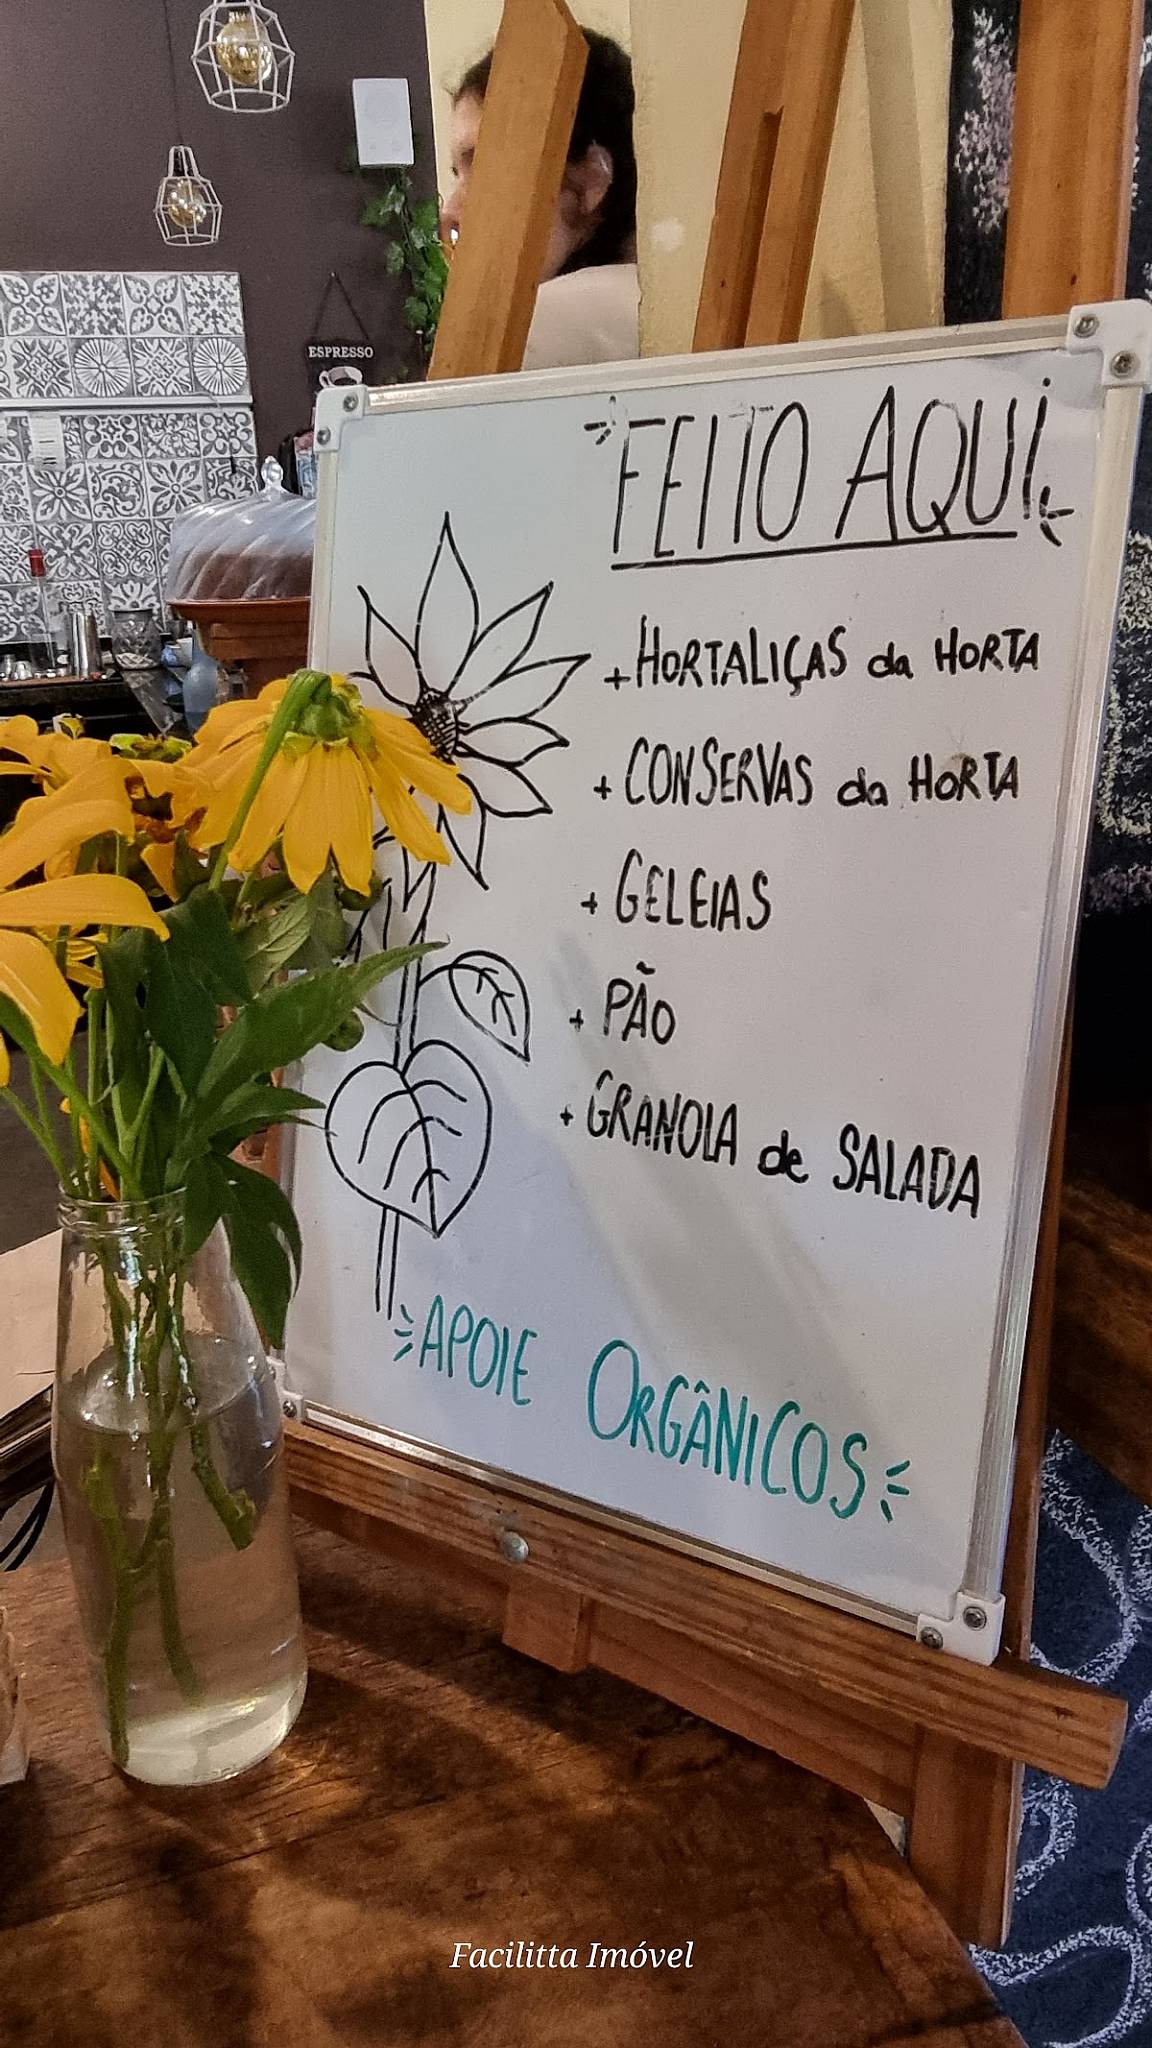 ESPRESSO
FEITO AQUI
+ HORTALIÇAS da HORTA
+ CONSERVAS da HORTA
+ GELEIAS
+ PÃO
+ GRANOLA de SALADA
APOIE ORGÂNICOS
Facilitta Imóvel